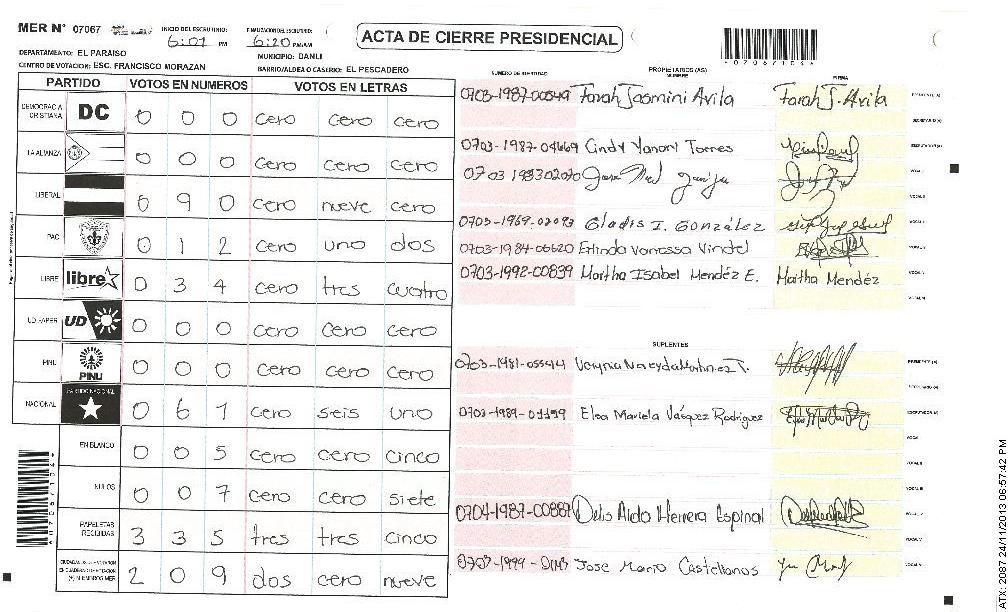 MER N° 07067
INICIO DEL ESCRUTINIO: 6:01 PM
FINALIZACION DEL ESCRUTINIO: 6:20 PM/AM
ACTA DE CIERRE PRESIDENCIAL
DEPARTAMENTO: EL PARAISO
MUNICIPIO: DANLI
CENTRO DE VOTACION: ESC. FRANCISCO MORAZAN
BARRIO/ALDEA O CASERIO: EL PESCADERO
PARTIDO VOTOS EN NUMEROS VOTOS EN LETRAS
DEMOCRACIA CRISTIANA DC 0 0 0 cero cero cero
LA ALIANZA 0 0 0 cero cero cero
LIBERAL 0 9 0 cero nueve cero
PAC 0 1 2 cero uno dos
LIBRE libre 0 3 4 cero tres cuatro
UD FAPER UD 0 0 0 cero cero cero
PINU PINU 0 0 0 cero cero cero
NACIONAL PARTIDO NACIONAL 0 6 1 cero seis uno
EN BLANCO 0 0 5 cero cero cinco
NULOS 0 0 7 cero cero siete
PAPELETAS RECIBIDAS 3 3 5 tres tres cinco
2 0 9 dos cero nueve
NUMERO DE IDENTIDAD
PROPIETARIOS (AS)
NOMBRE
FIRMA
0703-1987-00549 Farah Jasmini Avila Farah J. Avila
0703-1987-04669 Cindy Yanory Torres
0703 1983
Gladis I. González
0703-1984-00620 Erlinda Vanessa Vindel
0703-1992-00839 Maitha Isabel Mendéz E. Maitha Mendéz
SUPLENTES
0703-1981-
0703-1989-01199 Elsa Mariela Vásquez Rodriguez
0704-1987-00887 Delis Aida Herrera Espinal
Jose Mario Castellanos
ATX: 2087 24/11/2013 06:57:42 PM